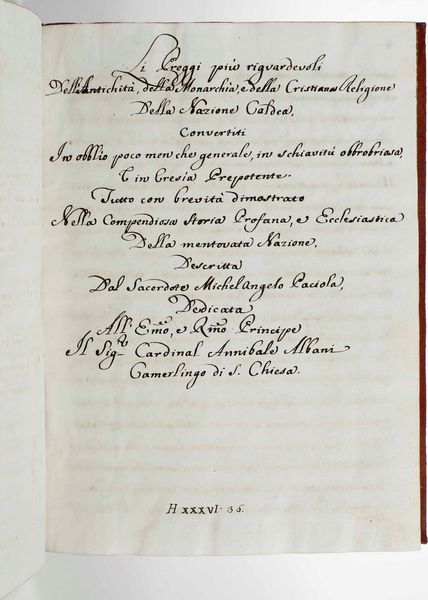 Li Preggi più riguardevoli
Dell'Antichità, della Monarchia, e della Cristiana Religione
Della Nazione Caldea,
Convertiti
In obblio poco men che generale, in schiavitù obbrobriosa,
E in Eresia Prepotente.
Tutto con brevità dimostrato
Nella Compendiosa Storia Profana, e Ecclesiastica
Della mentovata Nazione,
Descritta
Dal Sacerdote Michel Angelo Paciola,
Dedicata
All' Emo, e Rmo Principe
Il Sigr Cardinal Annibale Albani
Camerlingo di S. Chiesa.
H XXXVI. 36.